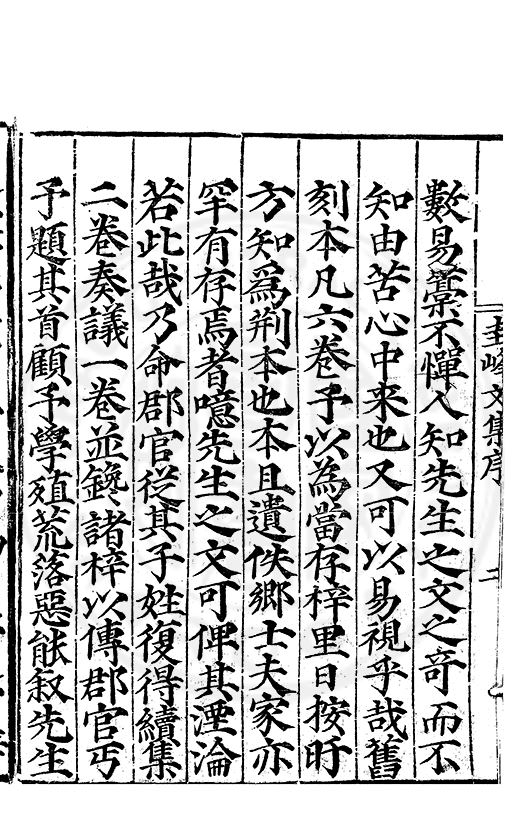 圭峰文集序
二
數易藳不憚人知先生之文之奇而不
知由苦心中来也又可以易視乎哉舊
刻本凡六卷予以為當存梓里日按旴
方知為荆本也本且遺佚鄉士夫家亦
罕有存焉者噫先生之文可俾其湮淪
若此哉乃命郡官從其子姓復得續集
二卷奏議一卷並鑱諸梓以傳郡官丐
予題其首顧予學殖荒落惡能叙先生